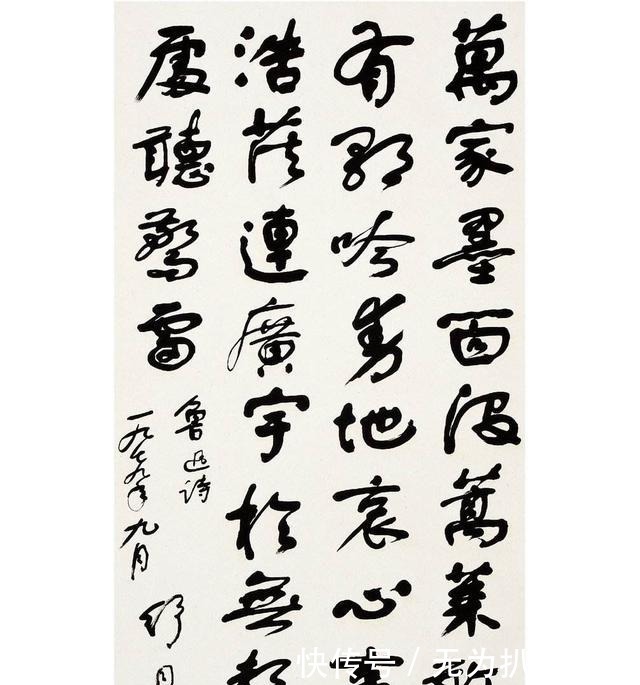 萬家墨面没蒿萊
有歌吟動地哀心
浩茫連廣宇於無
處聽驚雷
魯迅詩
一九七九年九月
舒同
快传号 / 无为扒